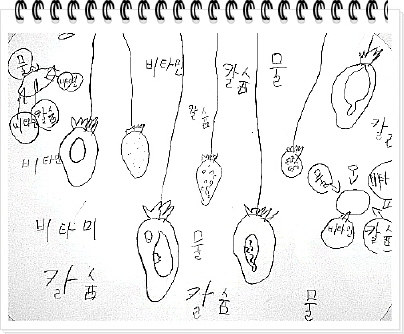 물
비타민
칼슘
물
비타민
비타민 칼슘
칼슘
비타민
물
비타미
비타민
칼슘
물
칼슘
칼슘
물